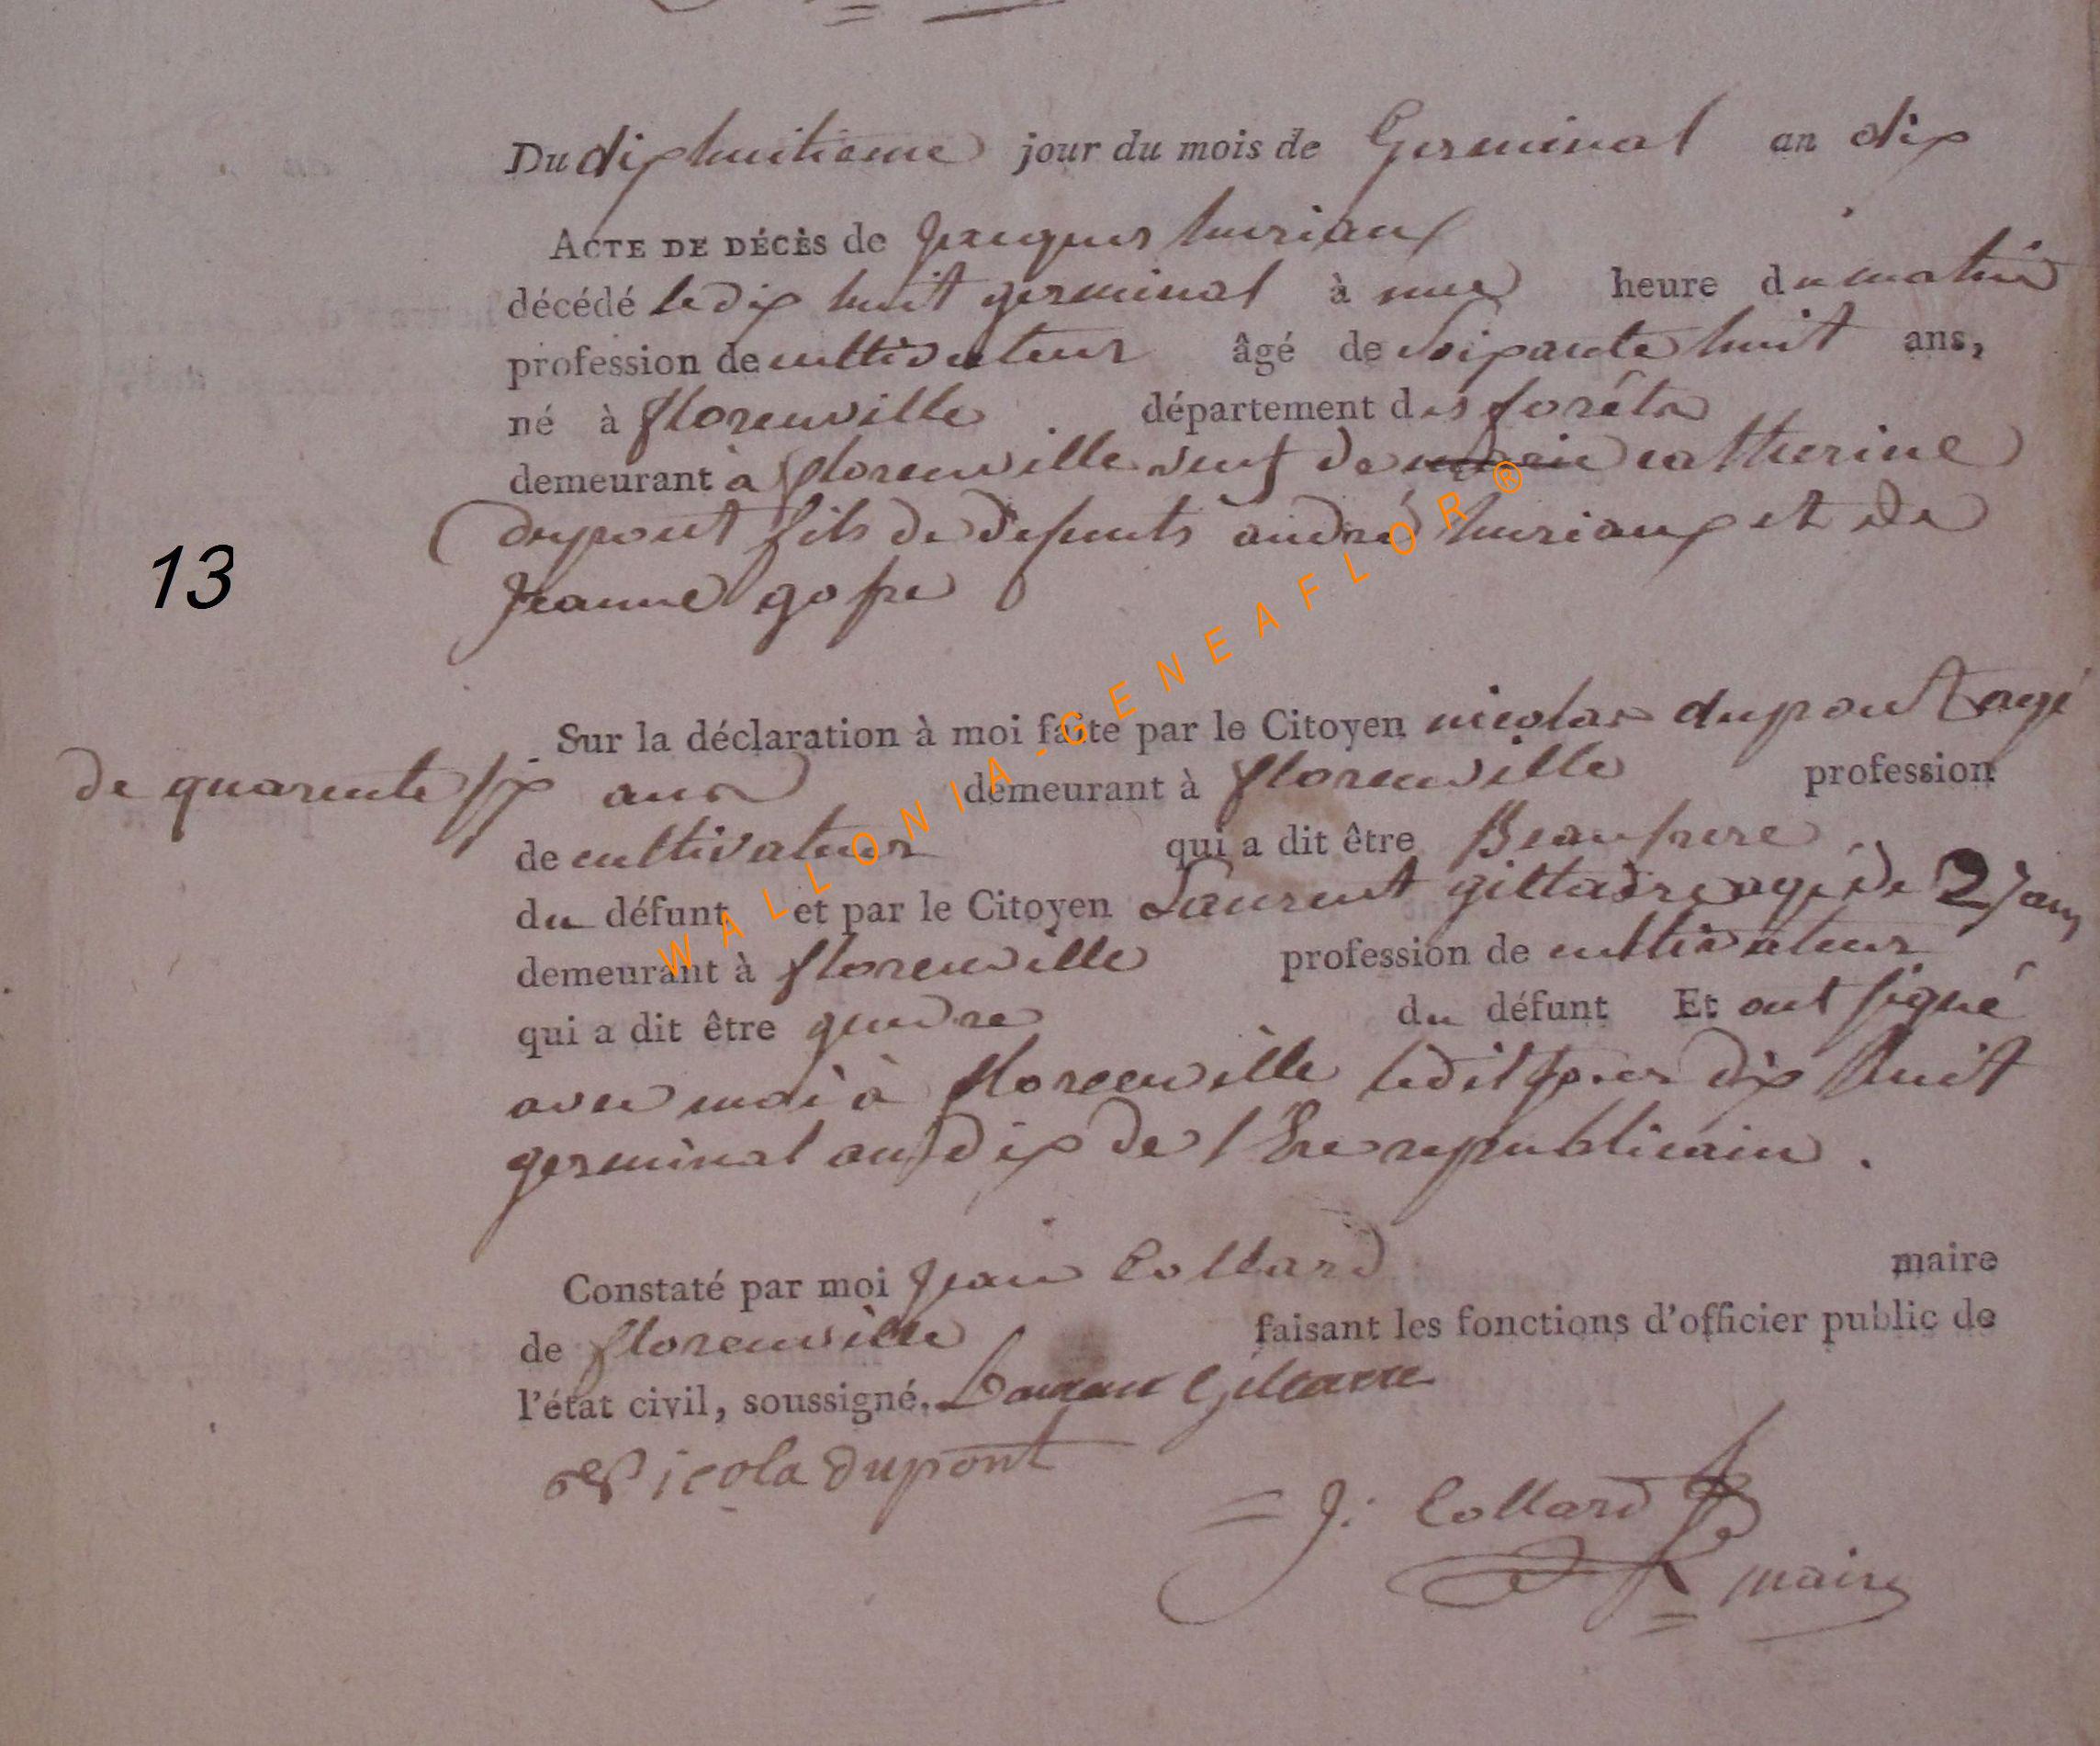 Du dixhuitieme jour du mois de Germinal an dix
ACTE DE DÉCÈS de Jacques huriaux
décédé le dix huit germinal à une heure du matin
profession de cultivateur âgé de soixante huit ans,
né à florenville département des forêts
demeurant à florenville veuf de catherine
dupont fils de defunts andré huriaux et de
13
Jeanne goffe
Sur la déclaration à moi faite par le Citoyen nicolas dupont agé
de quarente six ans demeurant à florenville profession
de cultivateur qui a dit être Beaufrere
du défunt et par le Citoyen Laurent giltaire agé de 27 ans
demeurant à florenville profession de cultivateur
qui a dit être gendre du défunt Et ont signé
avec moi à florenville ledit jour dix huit
germinal an dix de l'Ere republicain.
Constaté par moi Jean Collard maire
de florenville faisant les fonctions d'officier public de
l'état civil, soussigné. Laurent Giltaire
Nicola dupont
J: Collard
maire
WALLONIA-GENEAFLOR®